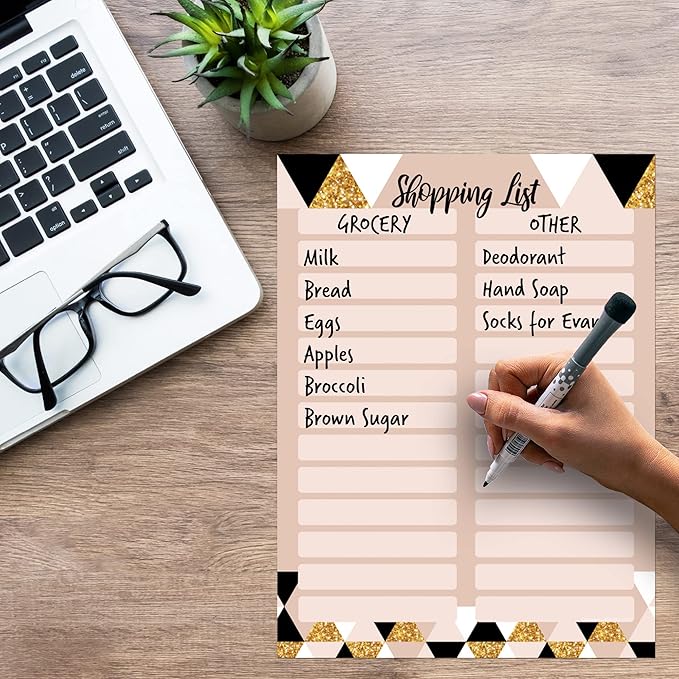 Shopping List
GROCERY
OTHER
Milk
Bread
Eggs
Apples
Broccoli
Brown Sugar
Deodorant
Hand Soap
Socks for Evan
delete
return
shift